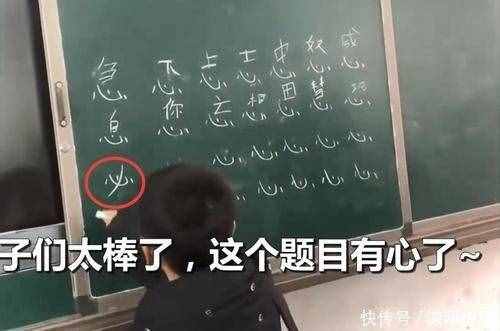 急 忑 志 忠 怒 感
息 您 忘 想 恩 慧 恐
必 心 心 心 心 心
心 心 心 心
子们太棒了，这个题目有心了~
快传号/